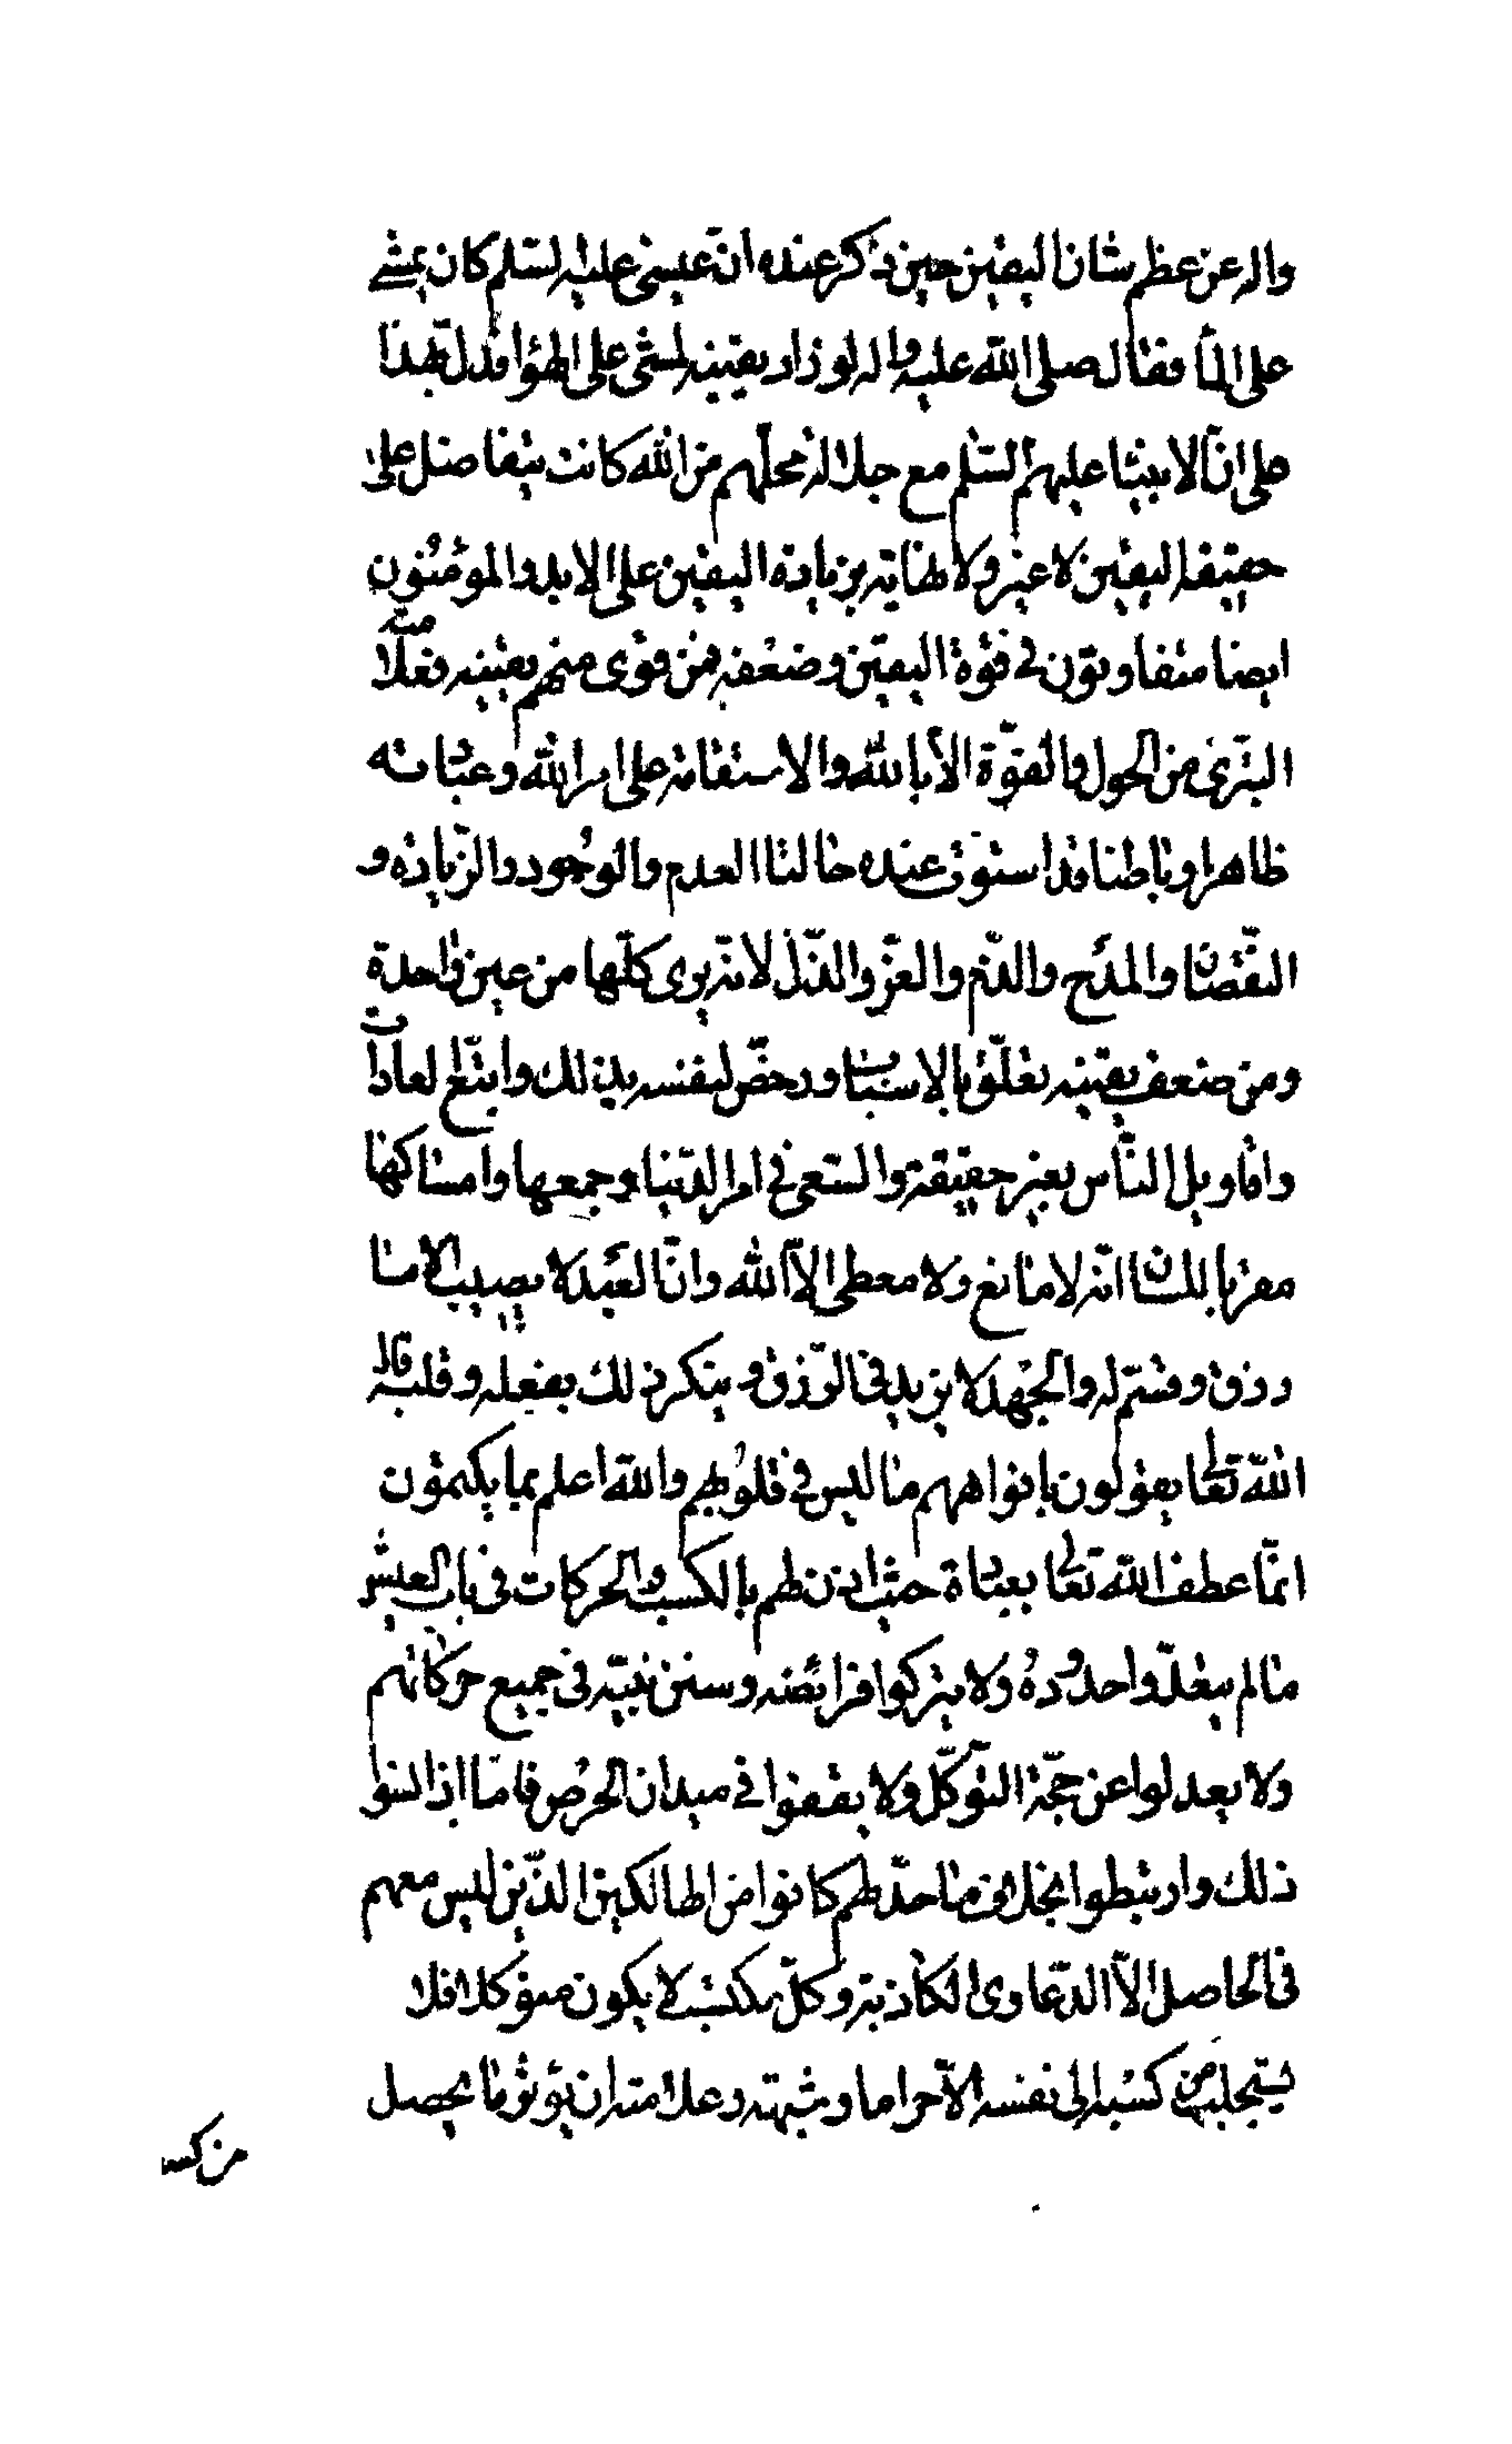 واله عن عظم شان اليقين حين ذكر عنده انّ عيسى عليه السّلم كان يمشى
على المآء فقال صلى اللّه عليه واله لو زاد يقينه لمشى على الهواء فدل بهذا
على انّ الانبياء عليهم السّلم مع جلالة محلّهم من اللّه كانت يتفاضل على
حقيقة اليقين لا غير ولا نهاية بزيادة اليقين على الابد والمؤمنون
ايضا متفاوتون فى قوّة اليقين وضعفه فمن قوى منهم يقينه فعلامته
التبّرى من الحول والقوّة الّا باللّه والاستقامة على امر اللّه وعبادته
ظاهرا وباطنا قد استوى عنده حالتا العدم والوجود والزّيادة و
النّقصان والمدح والذّم والعزّ والذّل لانّه يرى كلّها من عين واحدة
ومن ضعف يقينه تعلّق بالاسباب ورخّص لنفسه بذلك واتّبع العادات
واقاويل النّاس بغير حقيقة والسّعى فى امر الدّنيا وجمعها وامساكها
مقرّ باللسان انّه لا مانع ولا معطى الّا اللّه وانّ العبد لا يصيب الا ما
رزق وقسّم له والجهد لا يزيد فى الرّزق وينكر ذلك بفعله وقلبه قال
اللّه تعالى يقولون بافواههم ما ليس فى قلوبهم واللّه اعلم بما يكتمون
انّما عطف اللّه تعالى بعباده حيث اذن لهم بالكسب والحركات فى باب العيش
مالم يتعدّوا حدوده ولا يتركوا فرائضه وسنن نبيّه فى جميع حركاتهم
ولا يعدلوا عن حجّة التّوكّل ولا يقفوا فى ميدان الحرص فامّا اذا نسوا
ذلك وارتبطوا بخلاف ما حدّ لهم كانوا من الهالكين الذّين ليس معهم
فى الحاصل الّا الدّعاوى الكاذبة وكلّ مكتسب لا يكون متوكلا فلا
يستجلب من كسبه الى نفسه الّا حراما وشبهة وعلامته ان يؤثر ما يحصل
من كسبه